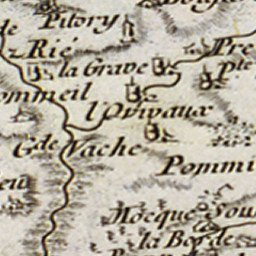 Pitory
de
Rié
Pre
la Grave
pte
ommeil
l'Privaux
Gde Vache
Pommi
eu
Mocque Sou
la Borde